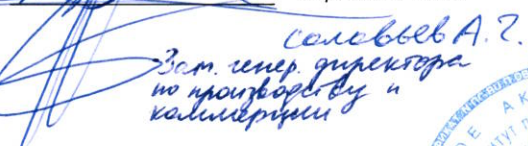 Соловьев А.Г.
Зам. генер. директора
по производству и
коммерции